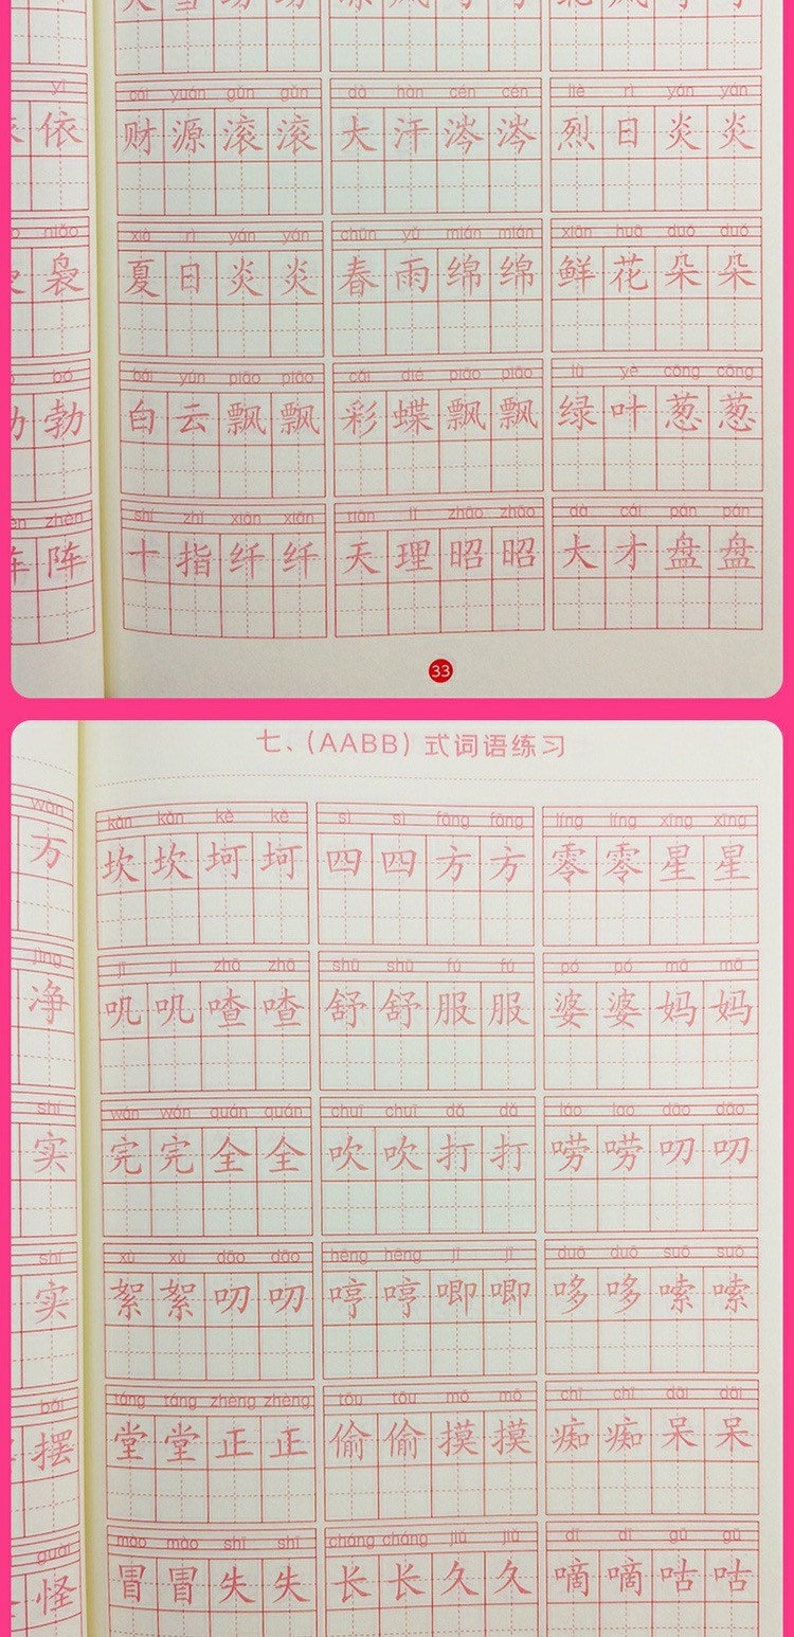 yī
依
cái yuán gǔn gǔn dà hàn cén cén liè rì yán yán
财源滚滚 大汗涔涔 烈日炎炎
niǎo
袅
xià rì yán yán chūn yǔ mián mián xiān huā duǒ duǒ
夏日炎炎 春雨绵绵 鲜花朵朵
bó
勃
bái yún piāo piāo cǎi dié piāo piāo lǜ yè cōng cōng
白云飘飘 彩蝶飘飘 绿叶葱葱
zhèn
阵阵
shí zhǐ xiān xiān tiān lǐ zhāo zhāo dà cái pán pán
十指纤纤 天理昭昭 大才盘盘
33
七、(AABB) 式词语练习
wàn
万
kǎn kǎn kě kě sì sì fāng fāng líng líng xīng xīng
坎坎坷坷 四四方方 零零星星
jìng
净
jī jī zhā zhā shū shū fú fú pó pó mā mā
叽叽喳喳 舒舒服服 婆婆妈妈
shí
实
wán wán quán quán chuī chuī dǎ dǎ láo lao dāo dāo
完完全全 吹吹打打 唠唠叨叨
shí
实
xù xù dāo dāo hēng hēng jī jī duō duō suō suō
絮絮叨叨 哼哼唧唧 哆哆嗦嗦
bǎi
摆
táng táng zhèng zhèng tōu tōu mō mō chī chī dāi dāi
堂堂正正 偷偷摸摸 痴痴呆呆
guài
怪
mào mào shī shī cháng cháng jiǔ jiǔ dī dī gū gū
冒冒失失 长长久久 嘀嘀咕咕